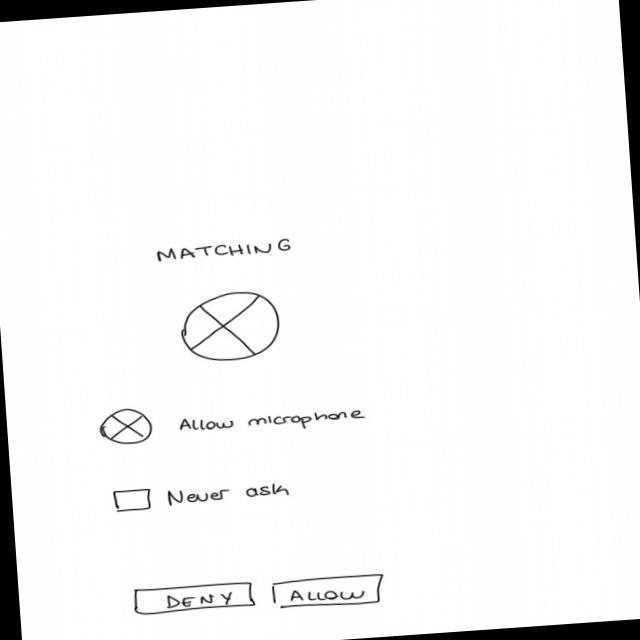 MATCHING
Allow microphone
Never ask
DENY ALLOW